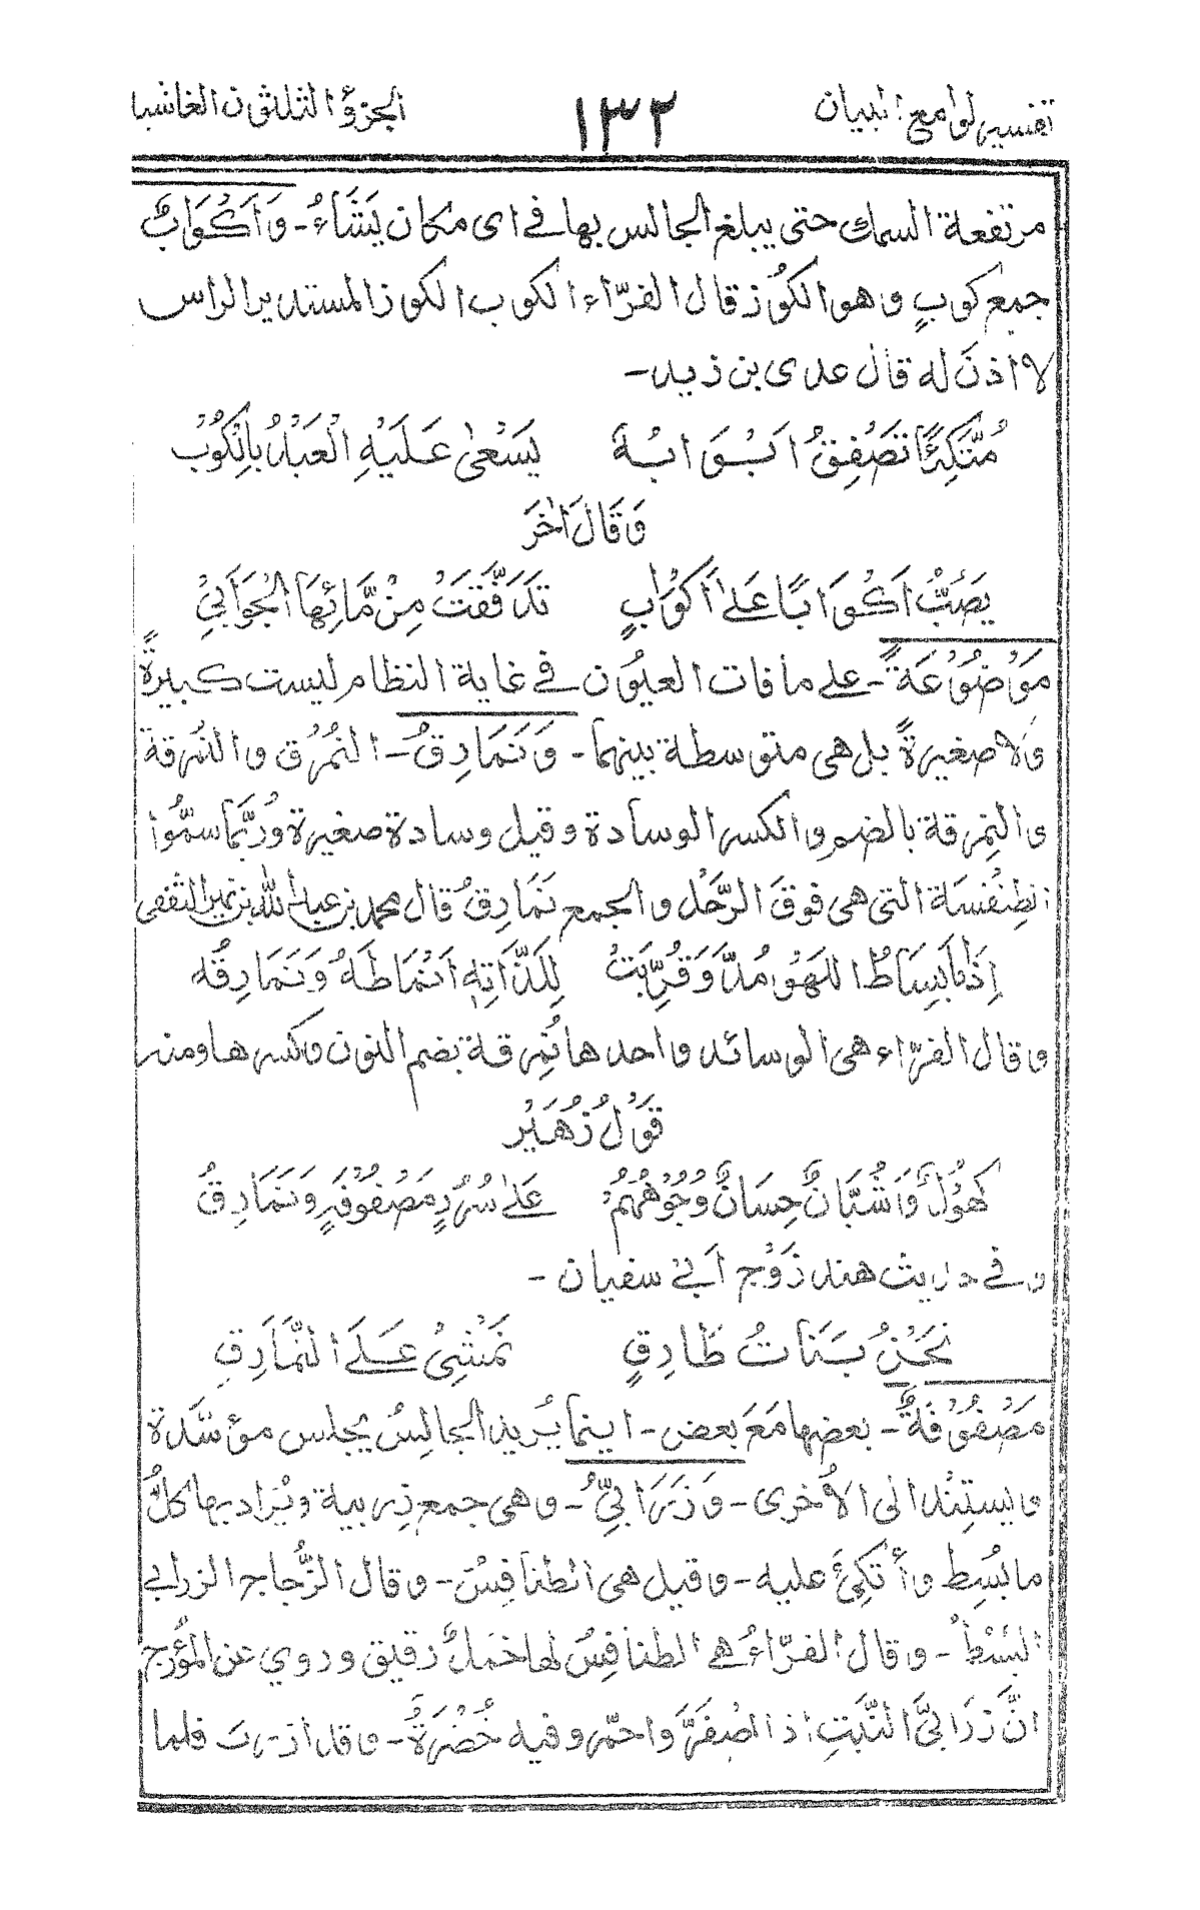 تفسير لوامع البيان ١٣٢ الجزؤ الثلثون الغاشيا
مرتفعة السمك حتى يبلغ الجالس بها في اى مكان يَشَاءُ - وَاَكْوَابٌ
جمع كوبٍ وهو الكُوز قال الفرّاء الكوب الكوز المستدير الراس
لا اذنَ له قال عدى بن زيد -
مُتَّكِئًا تَصْفِقُ اَبْوَابُهُ يَسْعىٰ عَلَيْهِ الْعَبْدُ بِالْكُوْبِ
وَقَالَ اٰخَرَ
يَصُبُّ اَكْوَابًا عَلىٰ اَكْوَابٍ تَدَفَّقَتْ مِنْ مَّائِهَا الْجَوَابِيْ
مَوْضُوْعَةٌ - على مافات العيُون في غاية النظام ليست كبيرةً
ولا صغيرةً بل هى متوسطة بينهما - وَنَمَارِقُ - النُمْرُق والنُمْرقة
والنِمرقة بالضم والكسر الوسادة وقيل وسادة صغيرة ورُبَّما سمَّوا
الطِنْفسَة التى هى فوقَ الرَّحْل والجمع نَمَارِقُ قال محمد بن عبد الله بن نمير الثقفى
اِذَا بِسَاطُ اللهْوِ مُدَّ وَقُرِّبَتْ لِلَذَّاتِهٖ اَنْمَاطَهُ وَنَمَارِقُه
وقال الفرّاء هى الوسائد واحدها نُمِرقة بضم النون وكسرها ومنه
قَوْلُ زُهَيْر
كُهُوْلٌ وَشُبَّانٌ حِسَانٌ وُجُوْهُهُمْ عَلىٰ سُرُرٍ مَصْفُوْفَةٍ وَنَمَارِقُ
وفي حديث هند زَوْج اَبي سفيان -
نَحْنُ بَنَاتُ طَارِقٍ نَمْشِيْ عَلَى النَّمَارِقِ
مَصْفُوْفَةٌ - بعضها مَعَ بعض - اينما يُريد الجالسُ يجلس مؤسَّدة
ويستِنْد الى الأُخرى - وَزَرَابِيُّ - وهى جمع زربية ويُرَاد بها كلُّ
ما بُسِط وأتكِئَ عليه - وقيل هى الطنافِسْ - وقال الزُّجاج الزرابي
البُسْطُ - وقال الفرّاءُ هي الطنافِسُ لها خَملٌ رقيق وروي عن المُؤرج
انَّ زرَابيَّ النَّبتِ اذا اصْفَرَّ واحمّر وفيه خُضْرَةٌ - وقد ازربَّ فلما